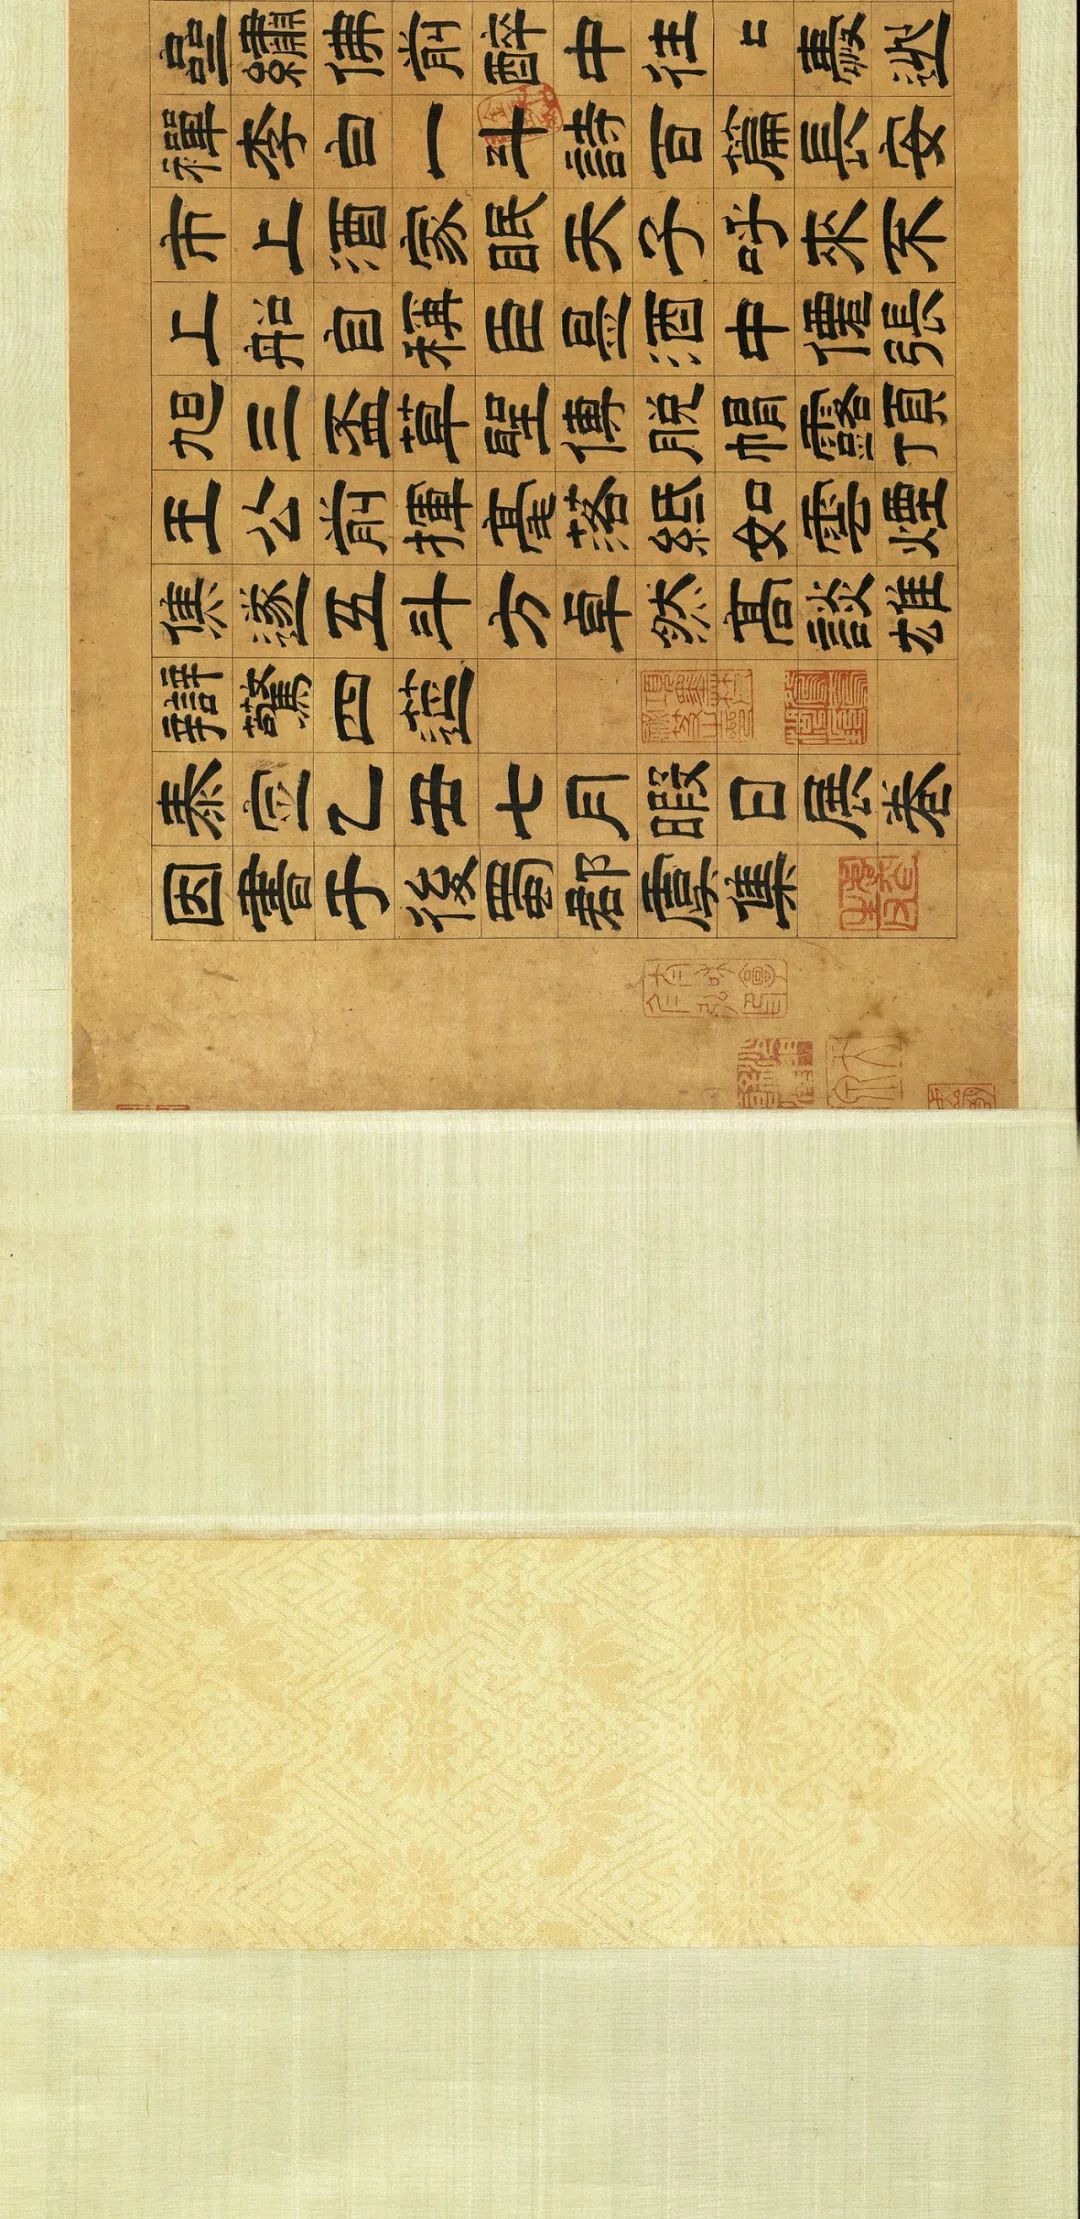 齋繡佛前醉中往々愛逃
禪李白一斗詩百篇長安
市上酒家眠天子呼來不
上船自稱臣是酒中僊張
旭三盃草聖傳脫帽露頂
王公前揮毫落紙如雲煙
焦遂五斗方卓然高談雄
辯驚四筵
泰定乙丑七月暇日展卷
因書于後蜀郡虞集